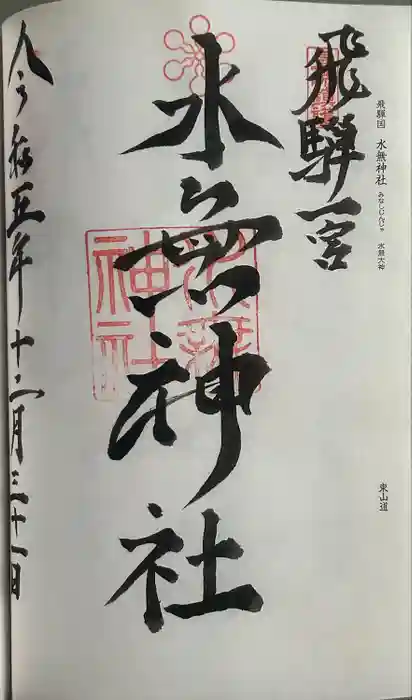 飛騨国 水無神社 みなしじんじゃ 水無大神
東山道
飛騨一宮
水無神社
水無神社
令和五年十二月三十一日